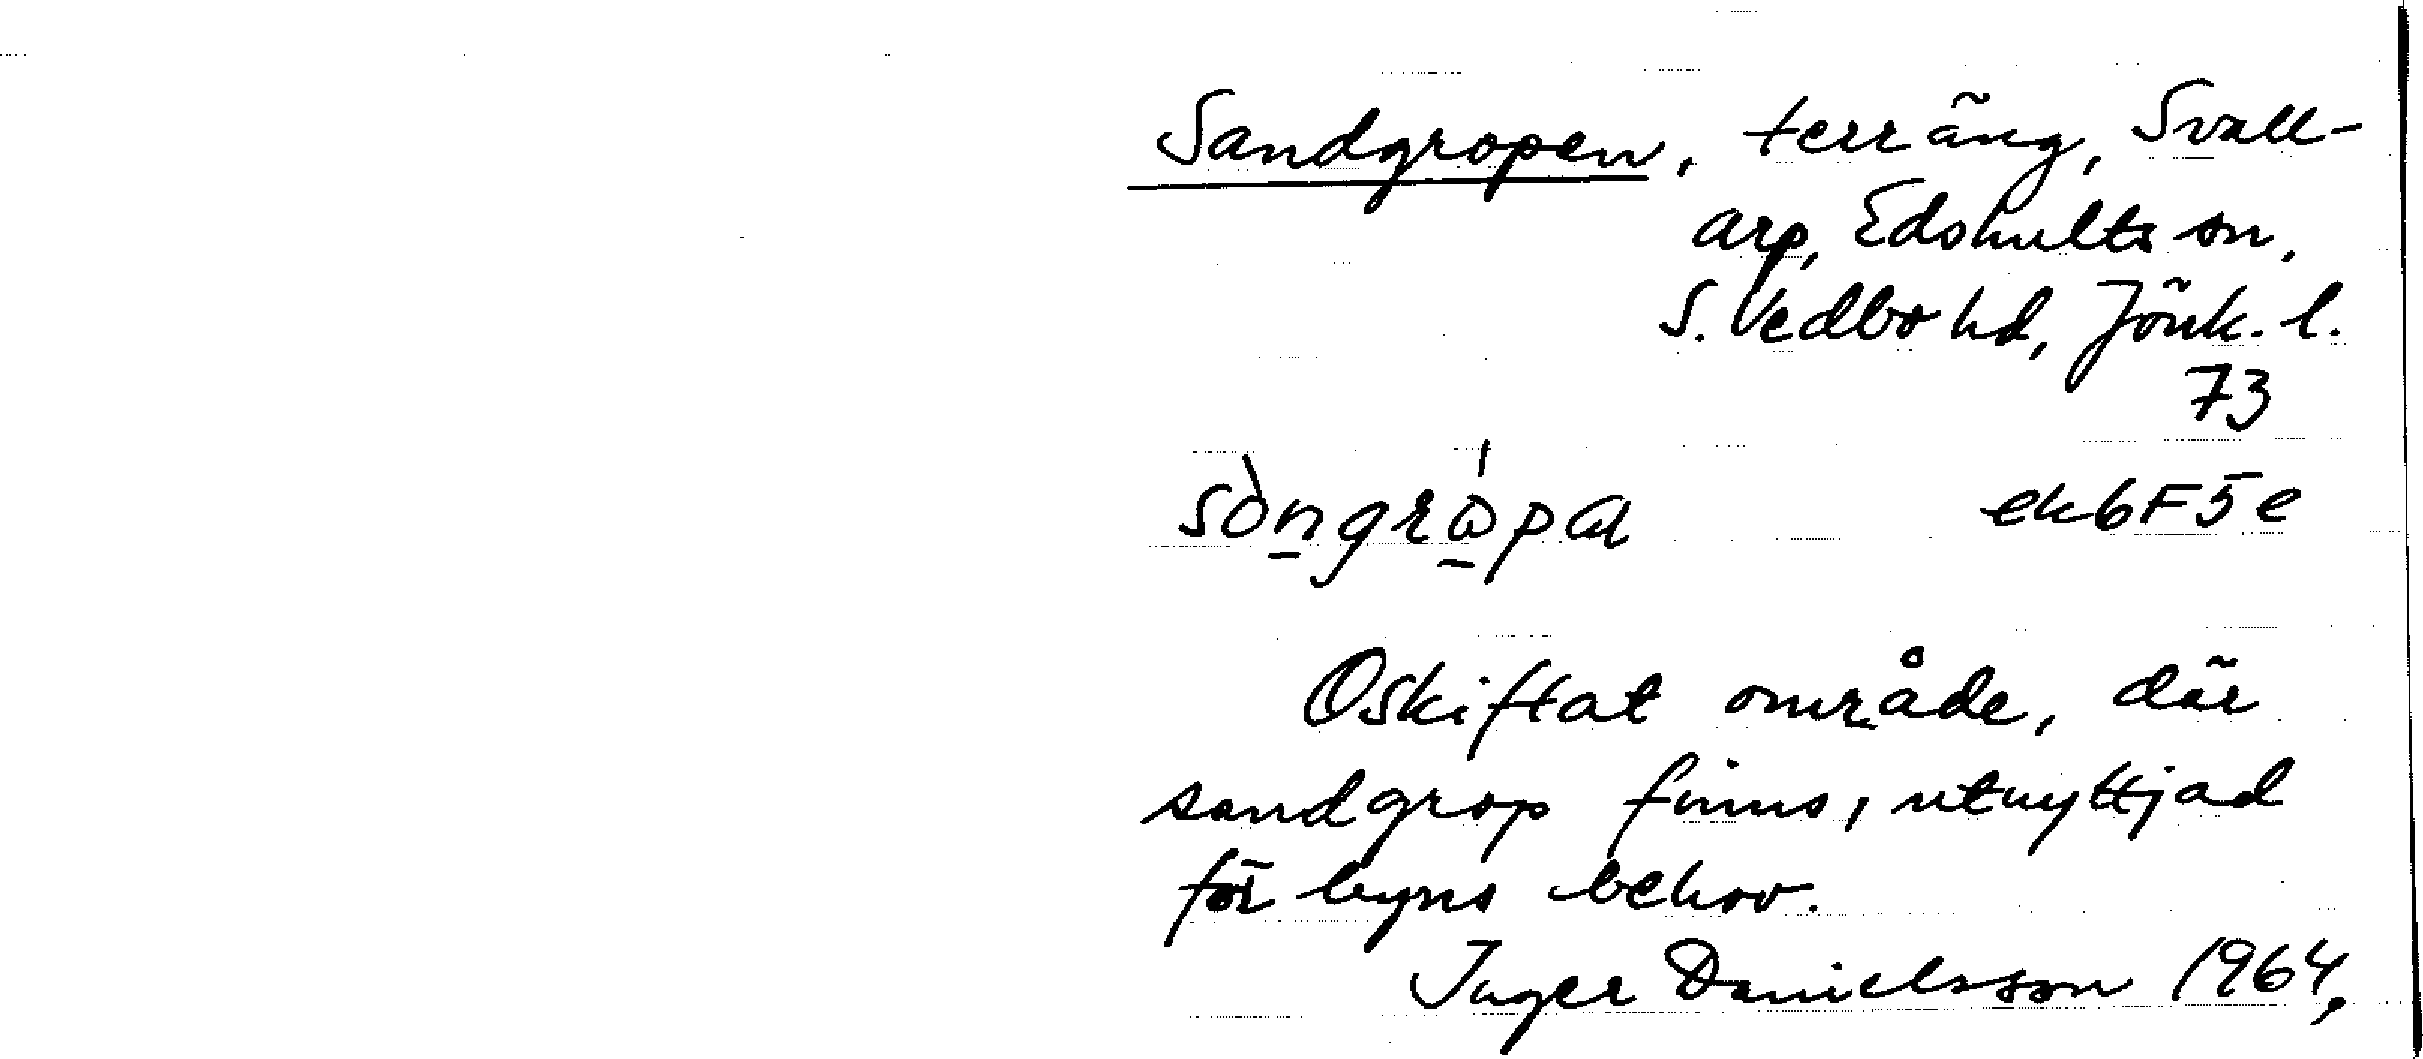 Sandgropen, terräng, Svall-
arp, Edshults sn,
S. Vedbo hd, Jönk. l.
73
sòngrǻpa ek6F5e
Oskiftat område, där
sandgrop finns, utnyttjad
för byns behov.
Inger Danielsson 1964.